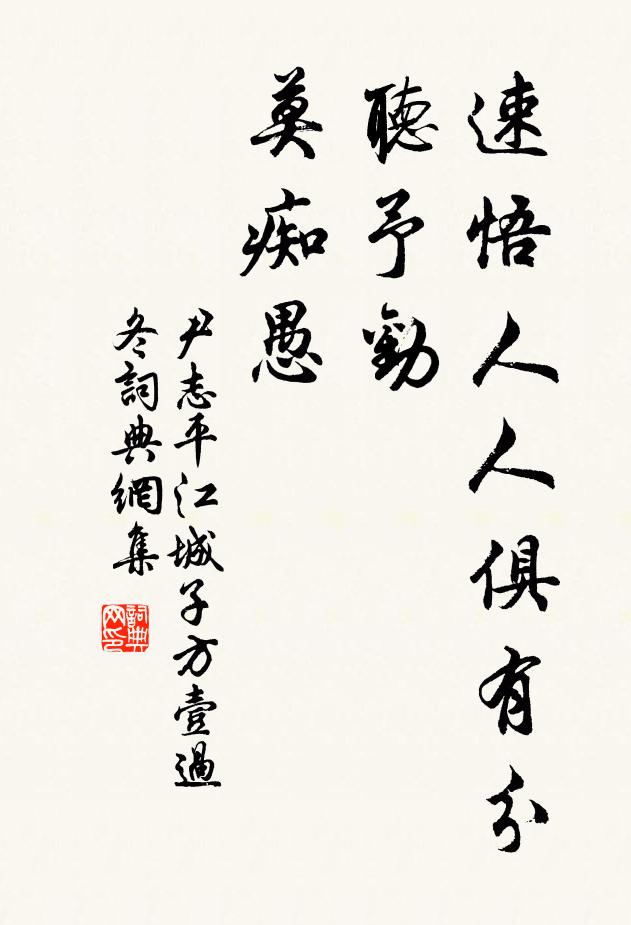 速悟人人俱有分
聽予勸
莫痴愚
尹志平江城子方壺過
冬詞典網集
詞典网印